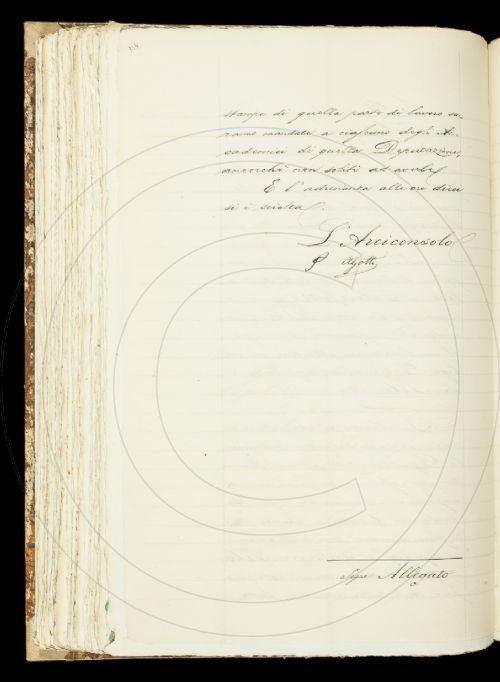 stampe di quella parte di lavoro sa-
ranno mandate a ciascuno degli Ac-
cademici di quella Deputazione,
ancorchè non soliti ad averle.
E l'adunanza alle ore dieci
si è sciolta.
L'Arciconsolo
Segue Allegato